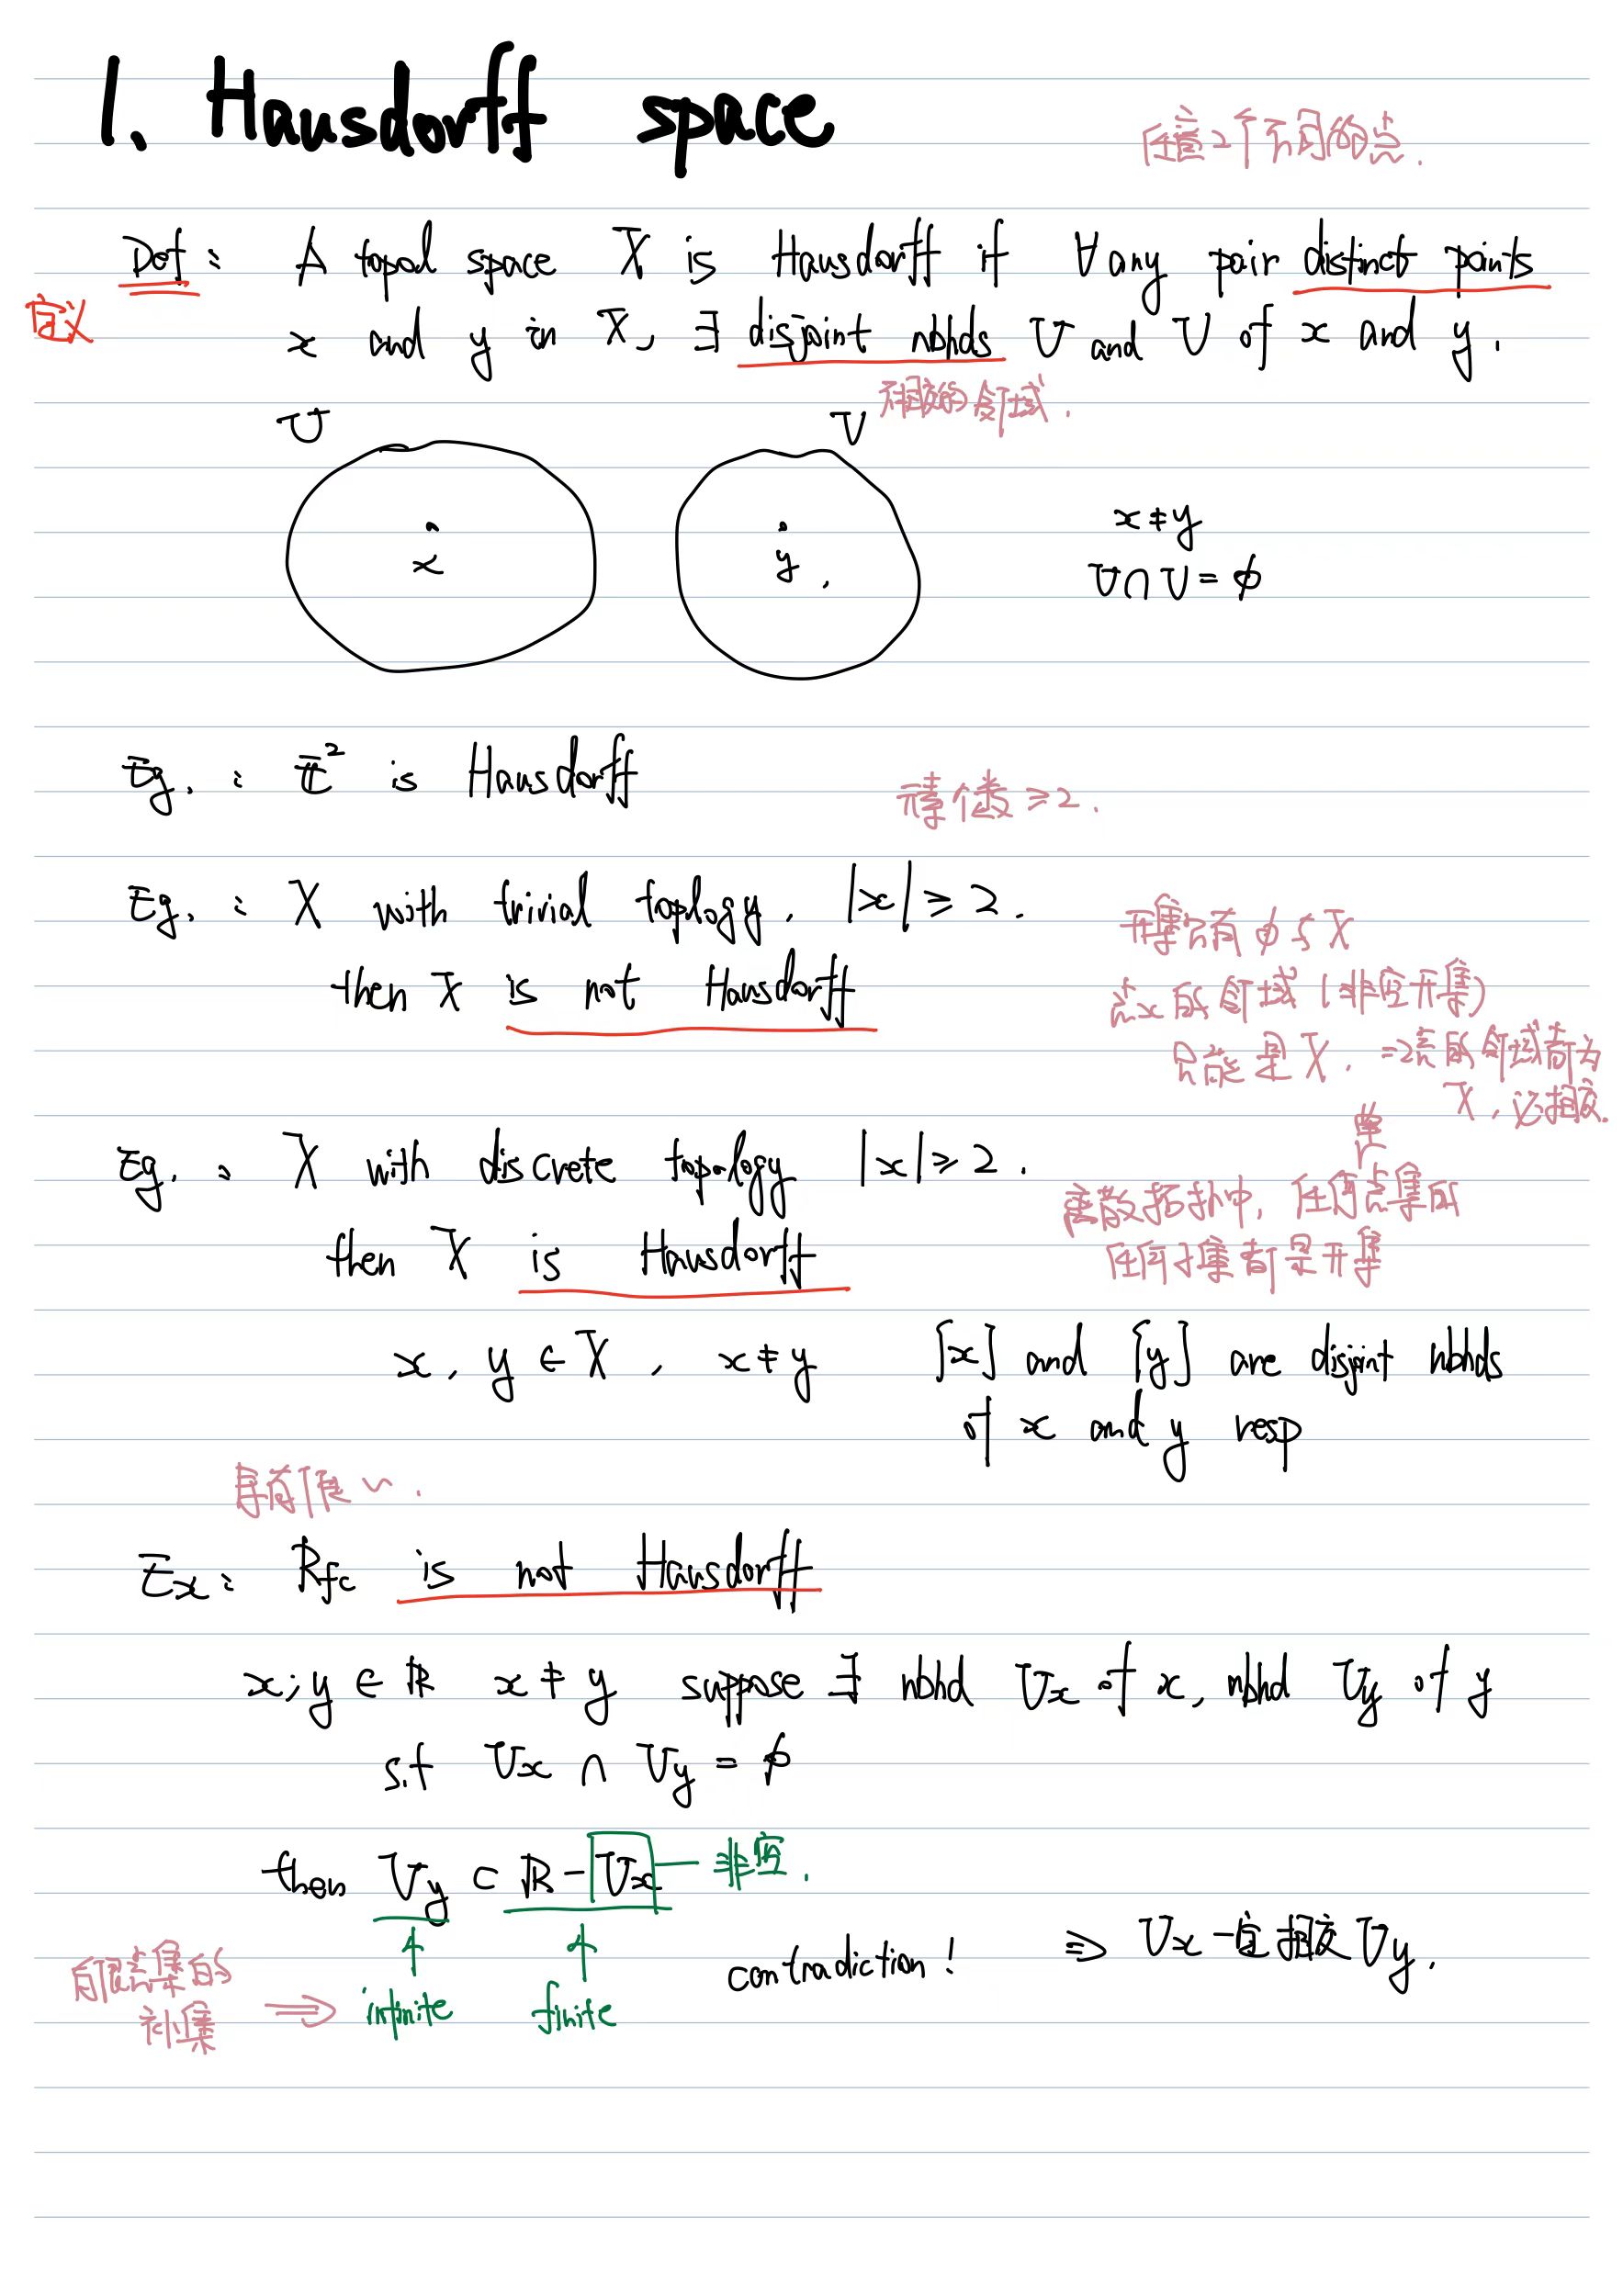 1. Hausdorff space
任意2个不同的点.
Def: A topol space X is Hausdorff if ∀ any pair distinct points
定义
x and y in X, ∃ disjoint nbhds U and V of x and y.
不相交的邻域.
U
V
x
y
x≠y
U∩V=∅
Eg.: E² is Hausdorff
元素个数≥2.
Eg.: X with trivial toplogy, |x|≥2.
开集只有∅与X
then X is not Hausdorff
点x的邻域(非空开集)
只能是X. ⇒2点的邻域都为
X,必相交.
Eg.: X with discrete topology |x|≥2.
单
离散拓扑中, 任何点集的
then X is Hausdorff
任何子集都是开集
x, y ∈ X, x≠y {x} and {y} are disjoint nbhds
of x and y resp
Ex: Rfc is not Hausdorff
x, y ∈ R x≠y suppose ∃ nbhd Ux of x, nbhd Uy of y
s.t Ux ∩ Uy = ∅
then Uy ⊂ R - Ux 非空.
contradiction! ⇒ Ux一定相交Uy.
有限点集的
补集 ⇒ infinite finite